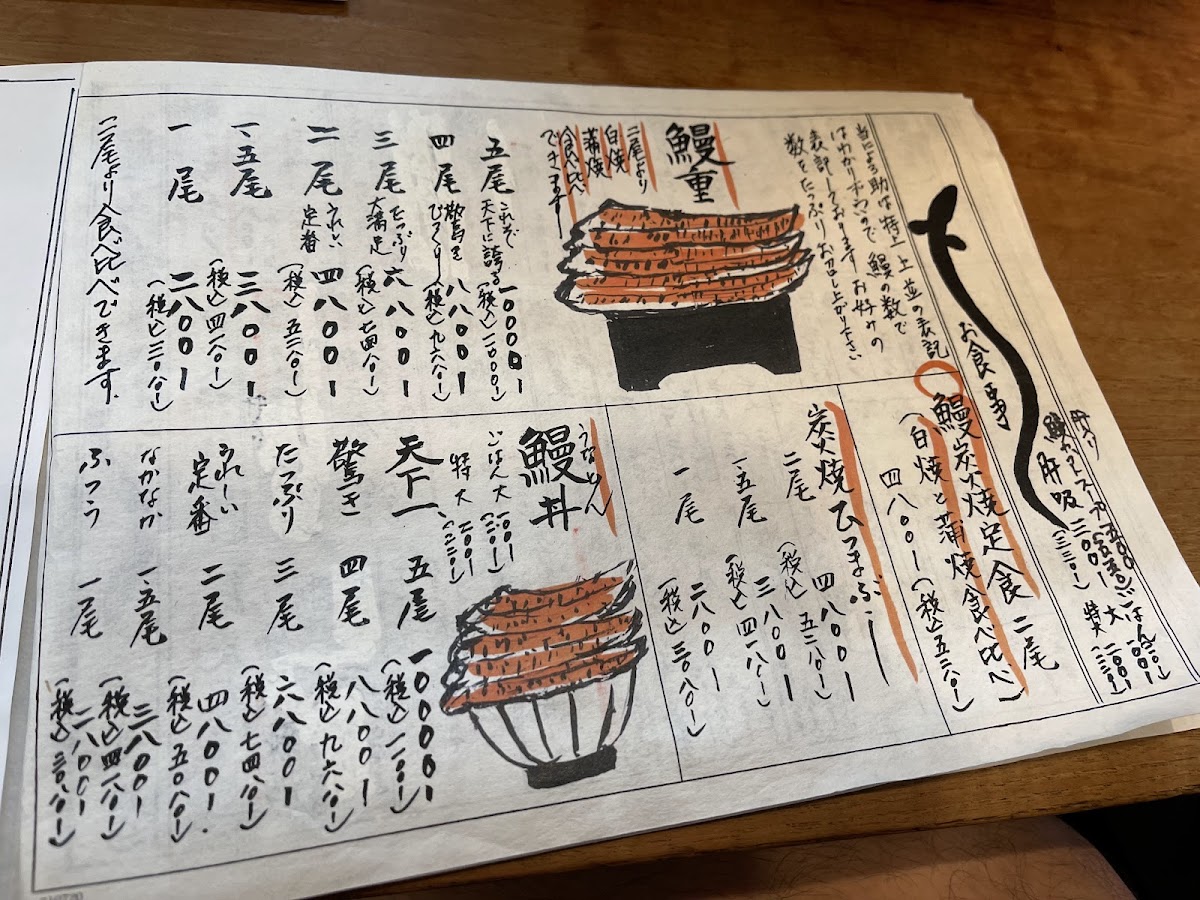 お食事
鰻肝吸
三〇〇ー
(三三〇ー)
ごはん
大
一〇〇ー
特大
二〇〇ー
(二二〇ー)
上並の表記
はわかりずらいので鰻の数で
表記しております お好みの
数をたっぷりお召し上がり下さい
鰻重
二尾より
白焼
蒲焼
食べ比べ
できますー
五尾
これぞ
天下に誇る
一〇〇〇〇ー
(税込一一〇〇〇ー)
四尾
驚き
びっくりー
八八〇〇ー
(税込九六八〇ー)
三尾
たっぷり
大満足
六八〇〇ー
(税込七四八〇ー)
二尾
うれしい
定番
四八〇〇ー
(税込五二八〇ー)
一、五尾
三八〇〇ー
(税込四一八〇ー)
一尾
二八〇〇ー
(税込三〇八〇ー)
二尾より食べ比べできます。
鰻炭焼定食 二尾
(白焼と蒲焼食べ比べ)
四八〇〇ー(税込五二八〇ー)
炭焼ひつまぶしー
二尾
四八〇〇ー
(税込五二八〇ー)
一、五尾
三八〇〇ー
(税込四一八〇ー)
一尾
二八〇〇ー
(税込三〇八〇ー)
うなどん
鰻丼
ごはん大
一〇〇ー
(一一〇ー)
特大
二〇〇ー
(二二〇ー)
天下一
五尾
一〇〇〇〇ー
驚き
四尾
八八〇〇ー
(税込九六八〇ー)
たっぷり
三尾
六八〇〇ー
(税込七四八〇ー)
うれーしい
定番
二尾
四八〇〇ー
なかなか
一、五尾
三八〇〇ー
(税込四一八〇ー)
ふつう
一尾
二八〇〇ー
(税込三〇八〇ー)